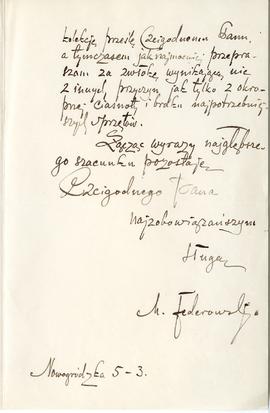 kolekcję prześlę Czcigodnemu Panu
a tymczasem jaknajmocniej przepra-
szam za zwłokę wynikającą nie
z innych przyczyn jak tylko z okro-
pnej ciasnoty i braku najpotrzebniej-
szych sprzętów.
Łącząc wyrazy najgłębsze-
go szacunku pozostaję
Czcigodnego Pana
najzobowiązańszym
sługą
M. Federowski
Nowogródzka 5-3.